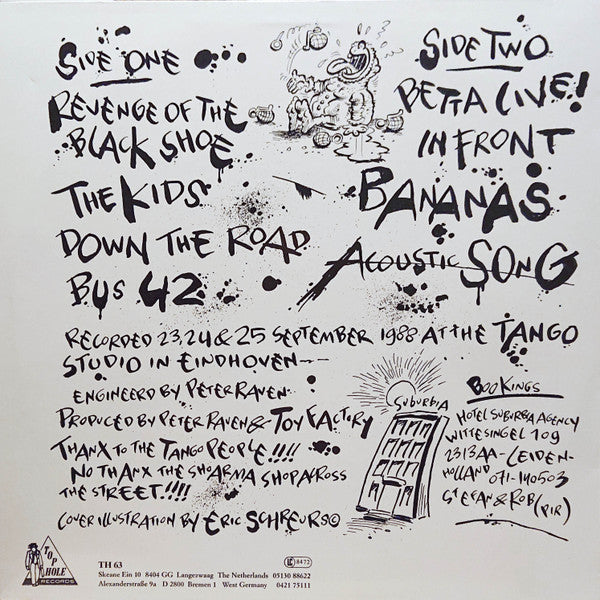 SIDE ONE
REVENGE OF THE
BLACK SHOE
THE KIDS
DOWN THE ROAD
BUS 42
SIDE TWO
BETTA LIVE!
IN FRONT
BANANAS
ACOUSTIC SONG
RECORDED 23, 24 & 25 SEPTEMBER 1988 AT THE TANGO
STUDIO IN EINDHOVEN--
ENGINEERD BY PETER RAVEN
PRODUCED BY PETER RAVEN & TOY FACTORY
THANX TO THE TANGO PEOPLE!!!!
NO THANX THE SHOARMA SHOP ACROSS
THE STREET!!!!
COVER ILLUSTRATION BY ERIC SCHREURS©
SUBURBIA
BOOKINGS
HOTEL SUBURBIA AGENCY
WITTE SINGEL 109
2313AA-LEIDEN-
HOLLAND 071-140503
STEFAN & ROB (PIR)
TOP
HOLE
RECORDS
TH 63
Skeane Ein 10 8404 GG Langezwaag The Netherlands 05130 88622
Alexanderstraße 9a D 2800 Bremen 1 West Germany 0421 75111
LC 8472